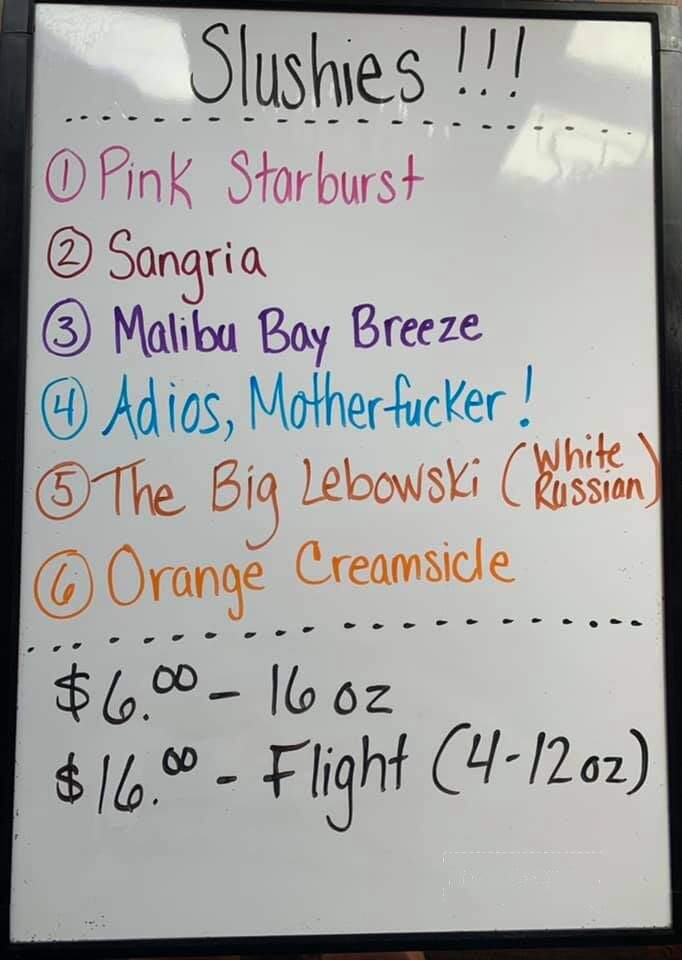 Slushies !!!
① Pink Starburst
② Sangria
③ Malibu Bay Breeze
④ Adios, Motherfucker!
⑤ The Big Lebowski (White Russian)
⑥ Orange Creamsicle
$6.00 - 16 oz
$16.00 - Flight (4-12oz)